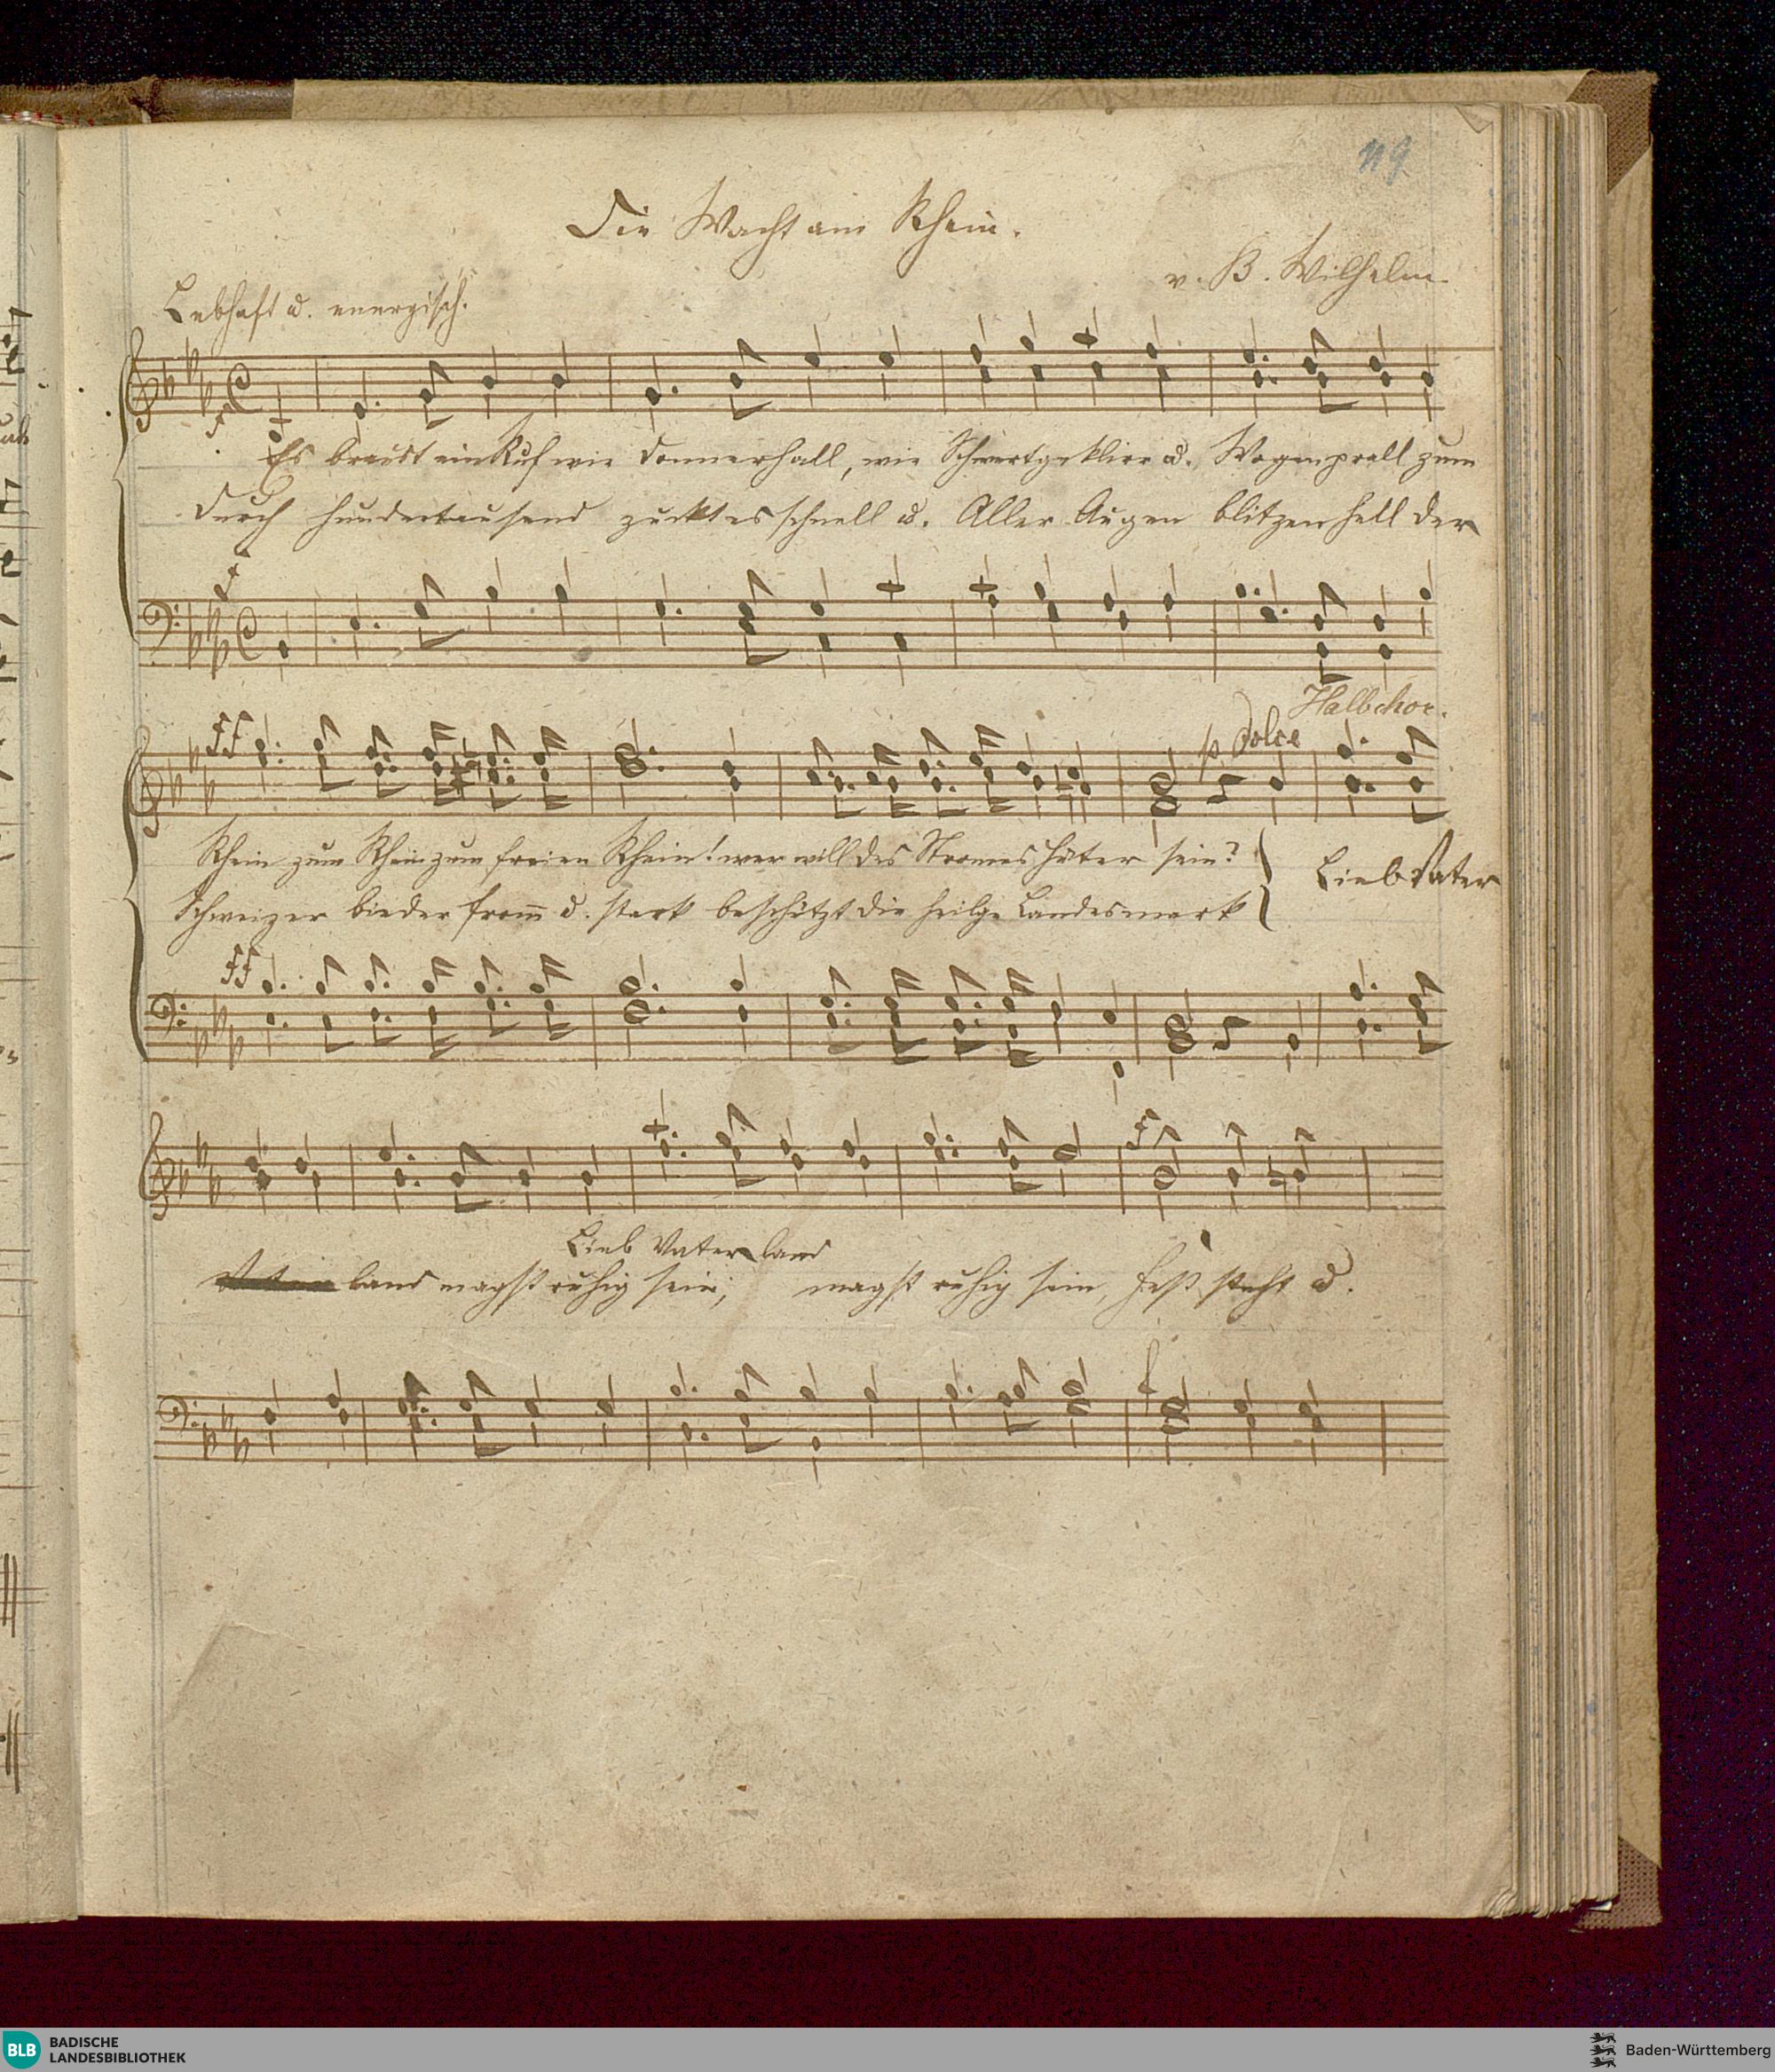 119
Die Wacht am Rhein.
v. B. Wilhelm.
Lebhaft u. energisch.
f
Es braust ein Ruf wie Donnerhall, wie Schwertgeklirr u. Wogenprall zum
Durch hunderttausend zuckt es schnell u. Aller Augen blitzen hell der
f
Halbchor.
ff
p dolce
Rhein zum Rhein zum freien Rhein! wer will des Stromes Hüter sein?
Lieb Vater
Schweizer bieder from̅ u. stark beschützt die heilge Landesmark
ff
f
Lieb Vaterland
land magst ruhig sein; magst ruhig sein, Fest steht u.
f
BLB BADISCHE LANDESBIBLIOTHEK
Baden-Württemberg